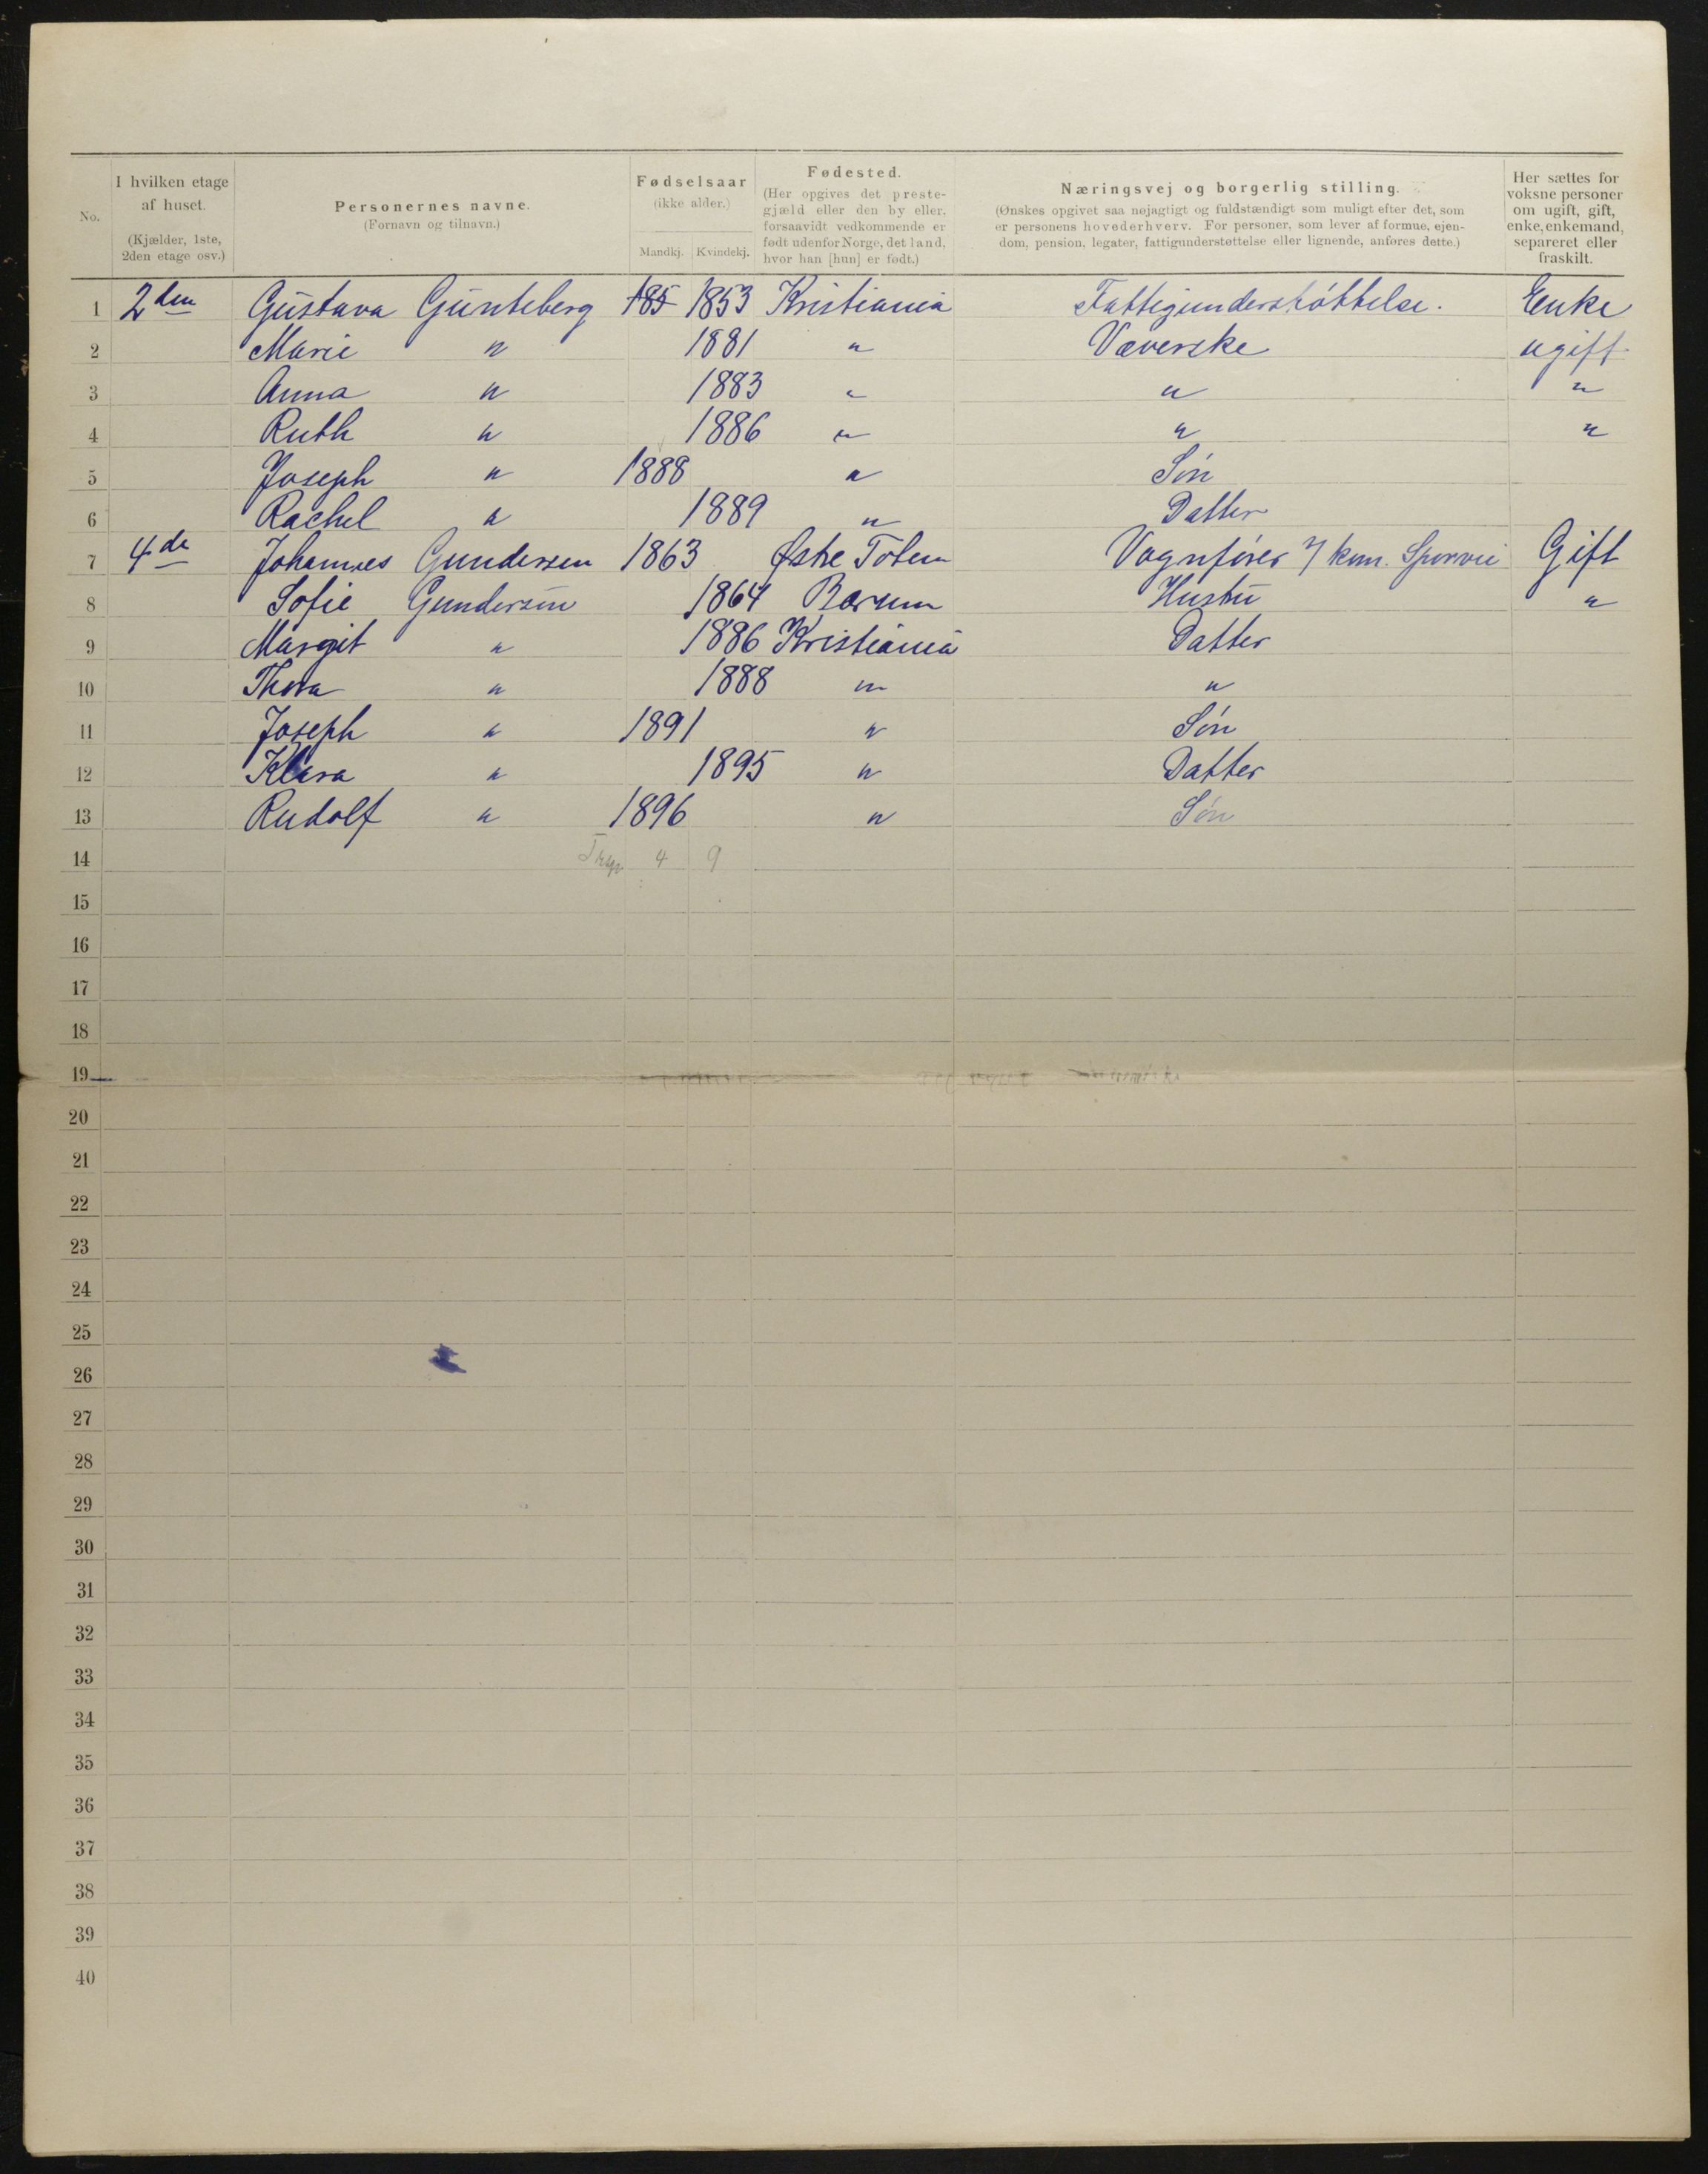 No.
I hvilken etage
af huset.
(Kjælder, 1ste,
2den etage osv.)
Personernes navne.
(Fornavn og tilnavn.)
Fødselsaar
(ikke alder.)
Mandkj. Kvindekj.
Fødested.
(Her opgives det preste-
gjæld eller den by eller,
forsaavidt vedkommende er
født udenfor Norge, det land,
hvor han [hun] er født.)
Næringsvej og borgerlig stilling.
(Ønskes opgivet saa nøjagtigt og fuldstændigt som muligt efter det, som
er personens hovederhverv. For personer, som lever af formue, ejen-
dom, pension, legater, fattigunderstøttelse eller lignende, anføres dette.)
Her sættes for
voksne personer
om ugift, gift,
enke, enkemand,
separeret eller
fraskilt.
1 2den Gustava Gunteberg 185 1853 Kristiania Fattigunderstøttelse. Enke
2 Marie " 1881 " Væverske ugift
3 Anna " 1883 " " "
4 Ruth " 1886 " " "
5 Joseph " 1888 " Søn
6 Rachel " 1889 " Datter
7 4de Johannes Gundersen 1863 Østre Toten Vognfører / kom. Sporvei Gift
8 Sofie Gundersen 1864 Bærum Hustru "
9 Margit " 1886 Kristiania Datter
10 Thora " 1888 " "
11 Joseph " 1891 " Søn
12 Klara " 1895 " Datter
13 Rudolf " 1896 " Søn
14 4 9
15
16
17
18
19
20
21
22
23
24
25
26
27
28
29
30
31
32
33
34
35
36
37
38
39
40